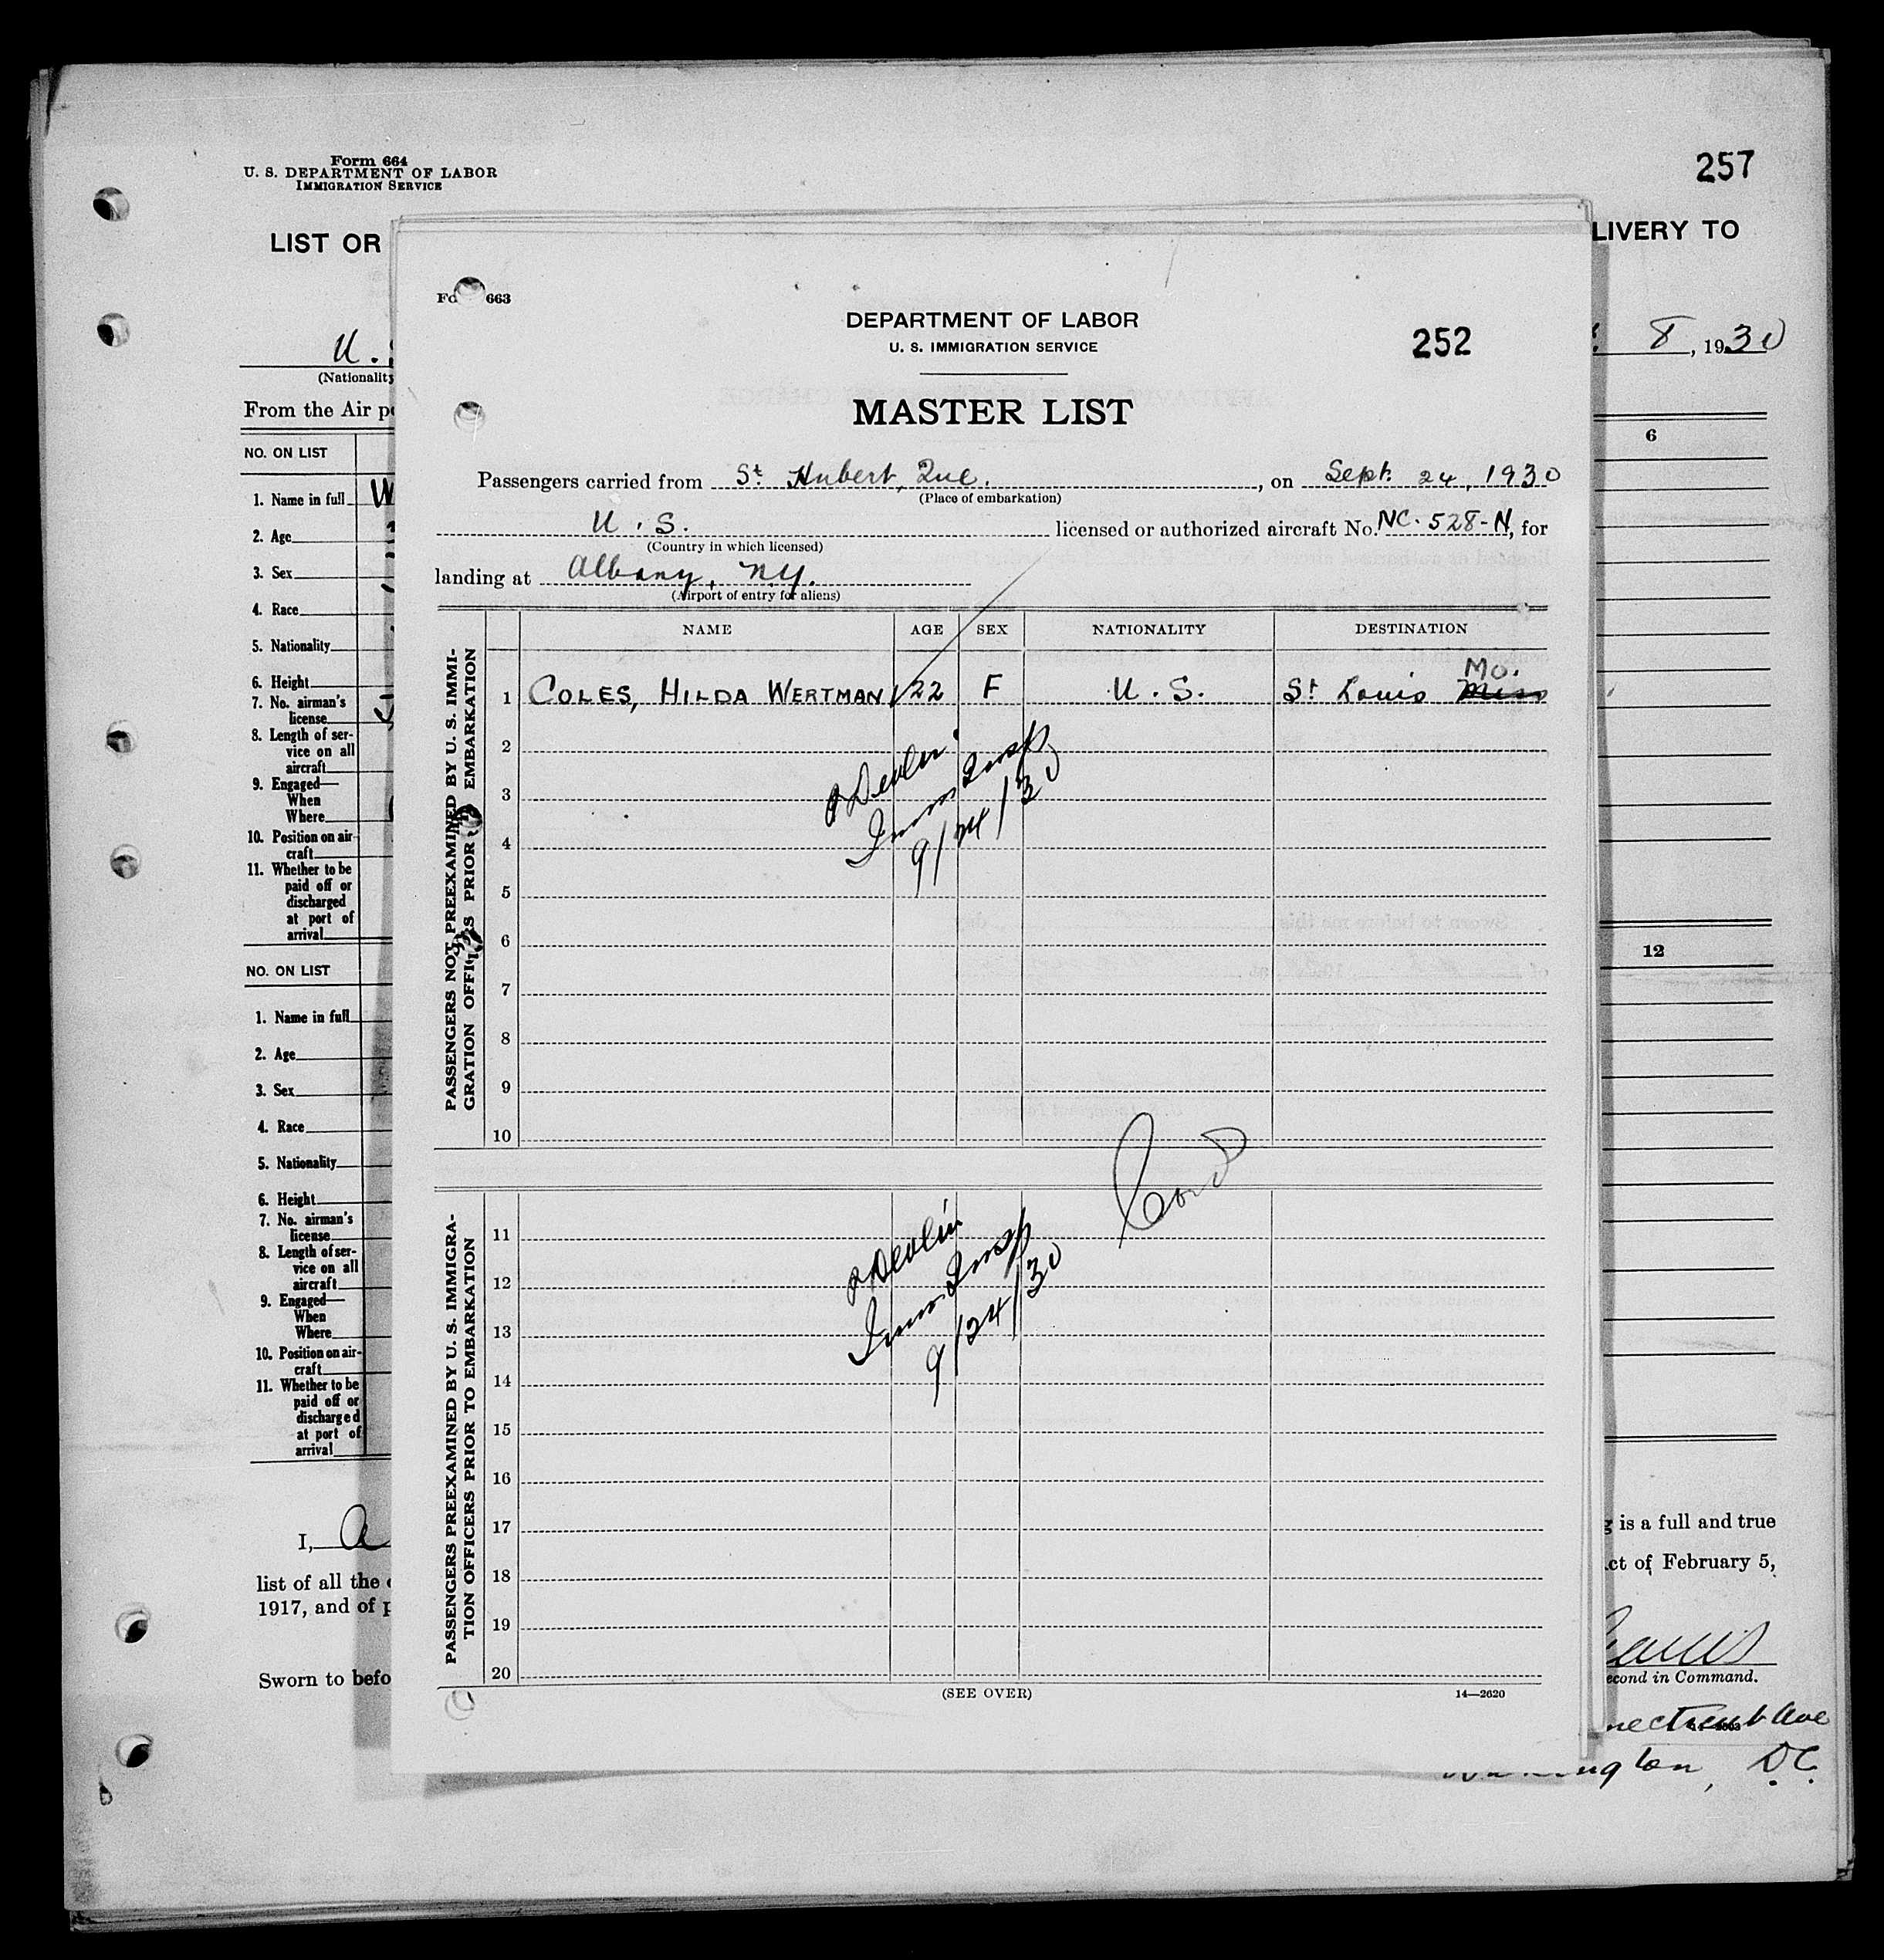 Form 664
U. S. DEPARTMENT OF LABOR
IMMIGRATION SERVICE
257
LIST OR
LIVERY TO
U.
8, 1930
(Nationality
From the Air po
NO. ON LIST
6
1. Name in full W
2. Age
3. Sex
4. Race
5. Nationality
6. Height
7. No. airman's
license
8. Length of ser-
vice on all
aircraft
9. Engaged—
When
Where
10. Position on air-
craft
11. Whether to be
paid off or
discharged
at port of
arrival
NO. ON LIST
12
1. Name in full
2. Age
3. Sex
4. Race
5. Nationality
6. Height
7. No. airman's
license
8. Length of ser-
vice on all
aircraft
9. Engaged—
When
Where
10. Position on air-
craft
11. Whether to be
paid off or
discharged
at port of
arrival
I, A
g is a full and true
list of all the
ct of February 5,
1917, and of p
Sworn to befo
econd in Command.
necticut Ave
ngton, D.C.
663
DEPARTMENT OF LABOR
U. S. IMMIGRATION SERVICE
252
MASTER LIST
Passengers carried from St. Hubert, Que., on Sept. 24, 1930
(Place of embarkation)
U. S. licensed or authorized aircraft No. NC. 528-N, for
(Country in which licensed)
landing at Albany, N.Y.
(Airport of entry for aliens)
NAME AGE SEX NATIONALITY DESTINATION
Mo.
1 COLES, HILDA WERTMAN 22 F U. S. St Louis Miss
2
3
4
5
6
7
8
9
10
PASSENGERS NOT PREEXAMINED BY U. S. IMMI-
GRATION OFFICERS PRIOR TO EMBARKATION
Devlin
Imm Insp
9/24/30
11
12
13
14
15
16
17
18
19
20
PASSENGERS PREEXAMINED BY U. S. IMMIGRA-
TION OFFICERS PRIOR TO EMBARKATION
Devlin
Imm Insp
9/24/30
Card
(SEE OVER)
14—2620